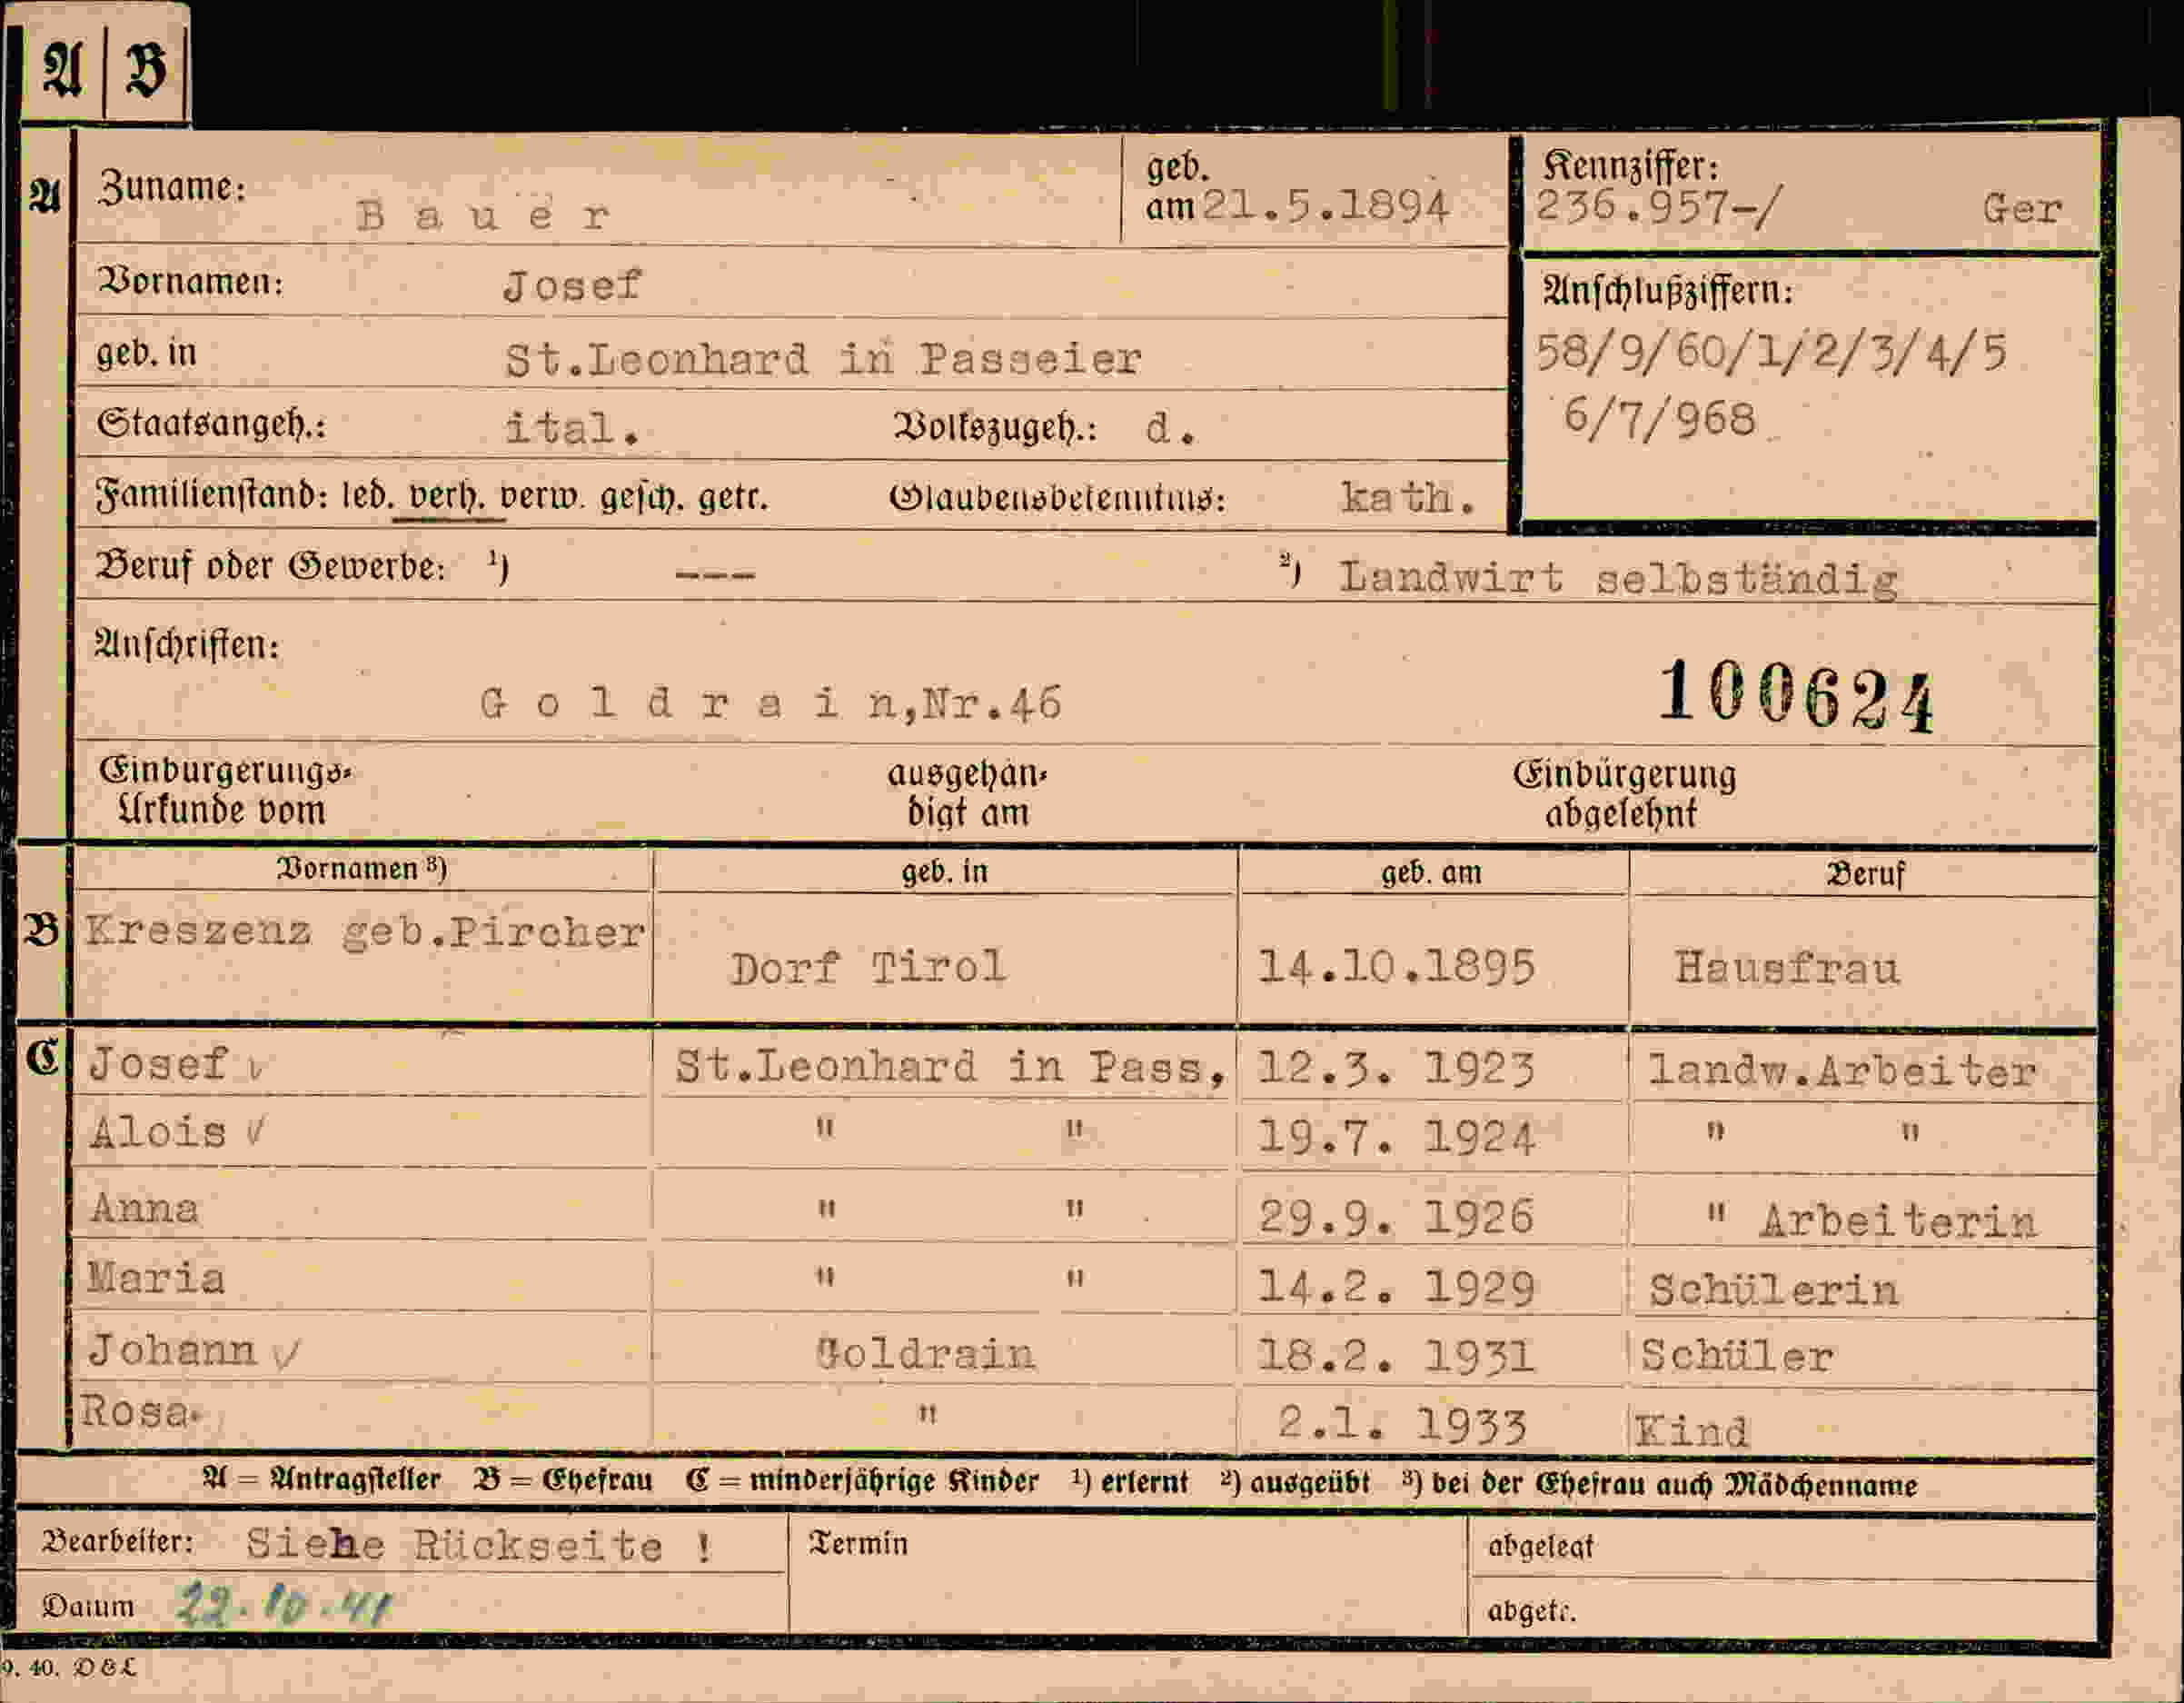 A B
A Zuname: Bauer geb. am 21.5.1894 Kennziffer: 236.957-/ Ger
Vornamen: Josef
Anschlußziffern:
geb. in St.Leonhard in Passeier 58/9/60/1/2/3/4/5
Staatsangeh.: ital. Volkszugeh.: d. 6/7/968
Familienstand: led. verh. verw. gesch. getr. Glaubensbekenntnis: kath.
Beruf oder Gewerbe: ¹) --- ²) Landwirt selbständig
Anschriften:
Goldrain,Nr.46 100624
Einbürgerungs- ausgehän- Einbürgerung
Urkunde vom digt am abgelehnt
Vornamen ³) geb. in geb. am Beruf
B Kreszenz geb.Pircher Dorf Tirol 14.10.1895 Hausfrau
C Josef √ St.Leonhard in Pass, 12.3. 1923 landw.Arbeiter
Alois √ " " 19.7. 1924 " "
Anna " " 29.9. 1926 " Arbeiterin
Maria " " 14.2. 1929 Schülerin
Johann √ Goldrain 18.2. 1931 Schüler
Rosa " 2.1. 1933 Kind
A = Antragsteller B = Ehefrau C = minderjährige Kinder ¹) erlernt ²) ausgeübt ³) bei der Ehefrau auch Mädchenname
Bearbeiter: Siehe Rückseite ! Termin abgelegt
Datum 22.10.41 abgetr.
9. 40. D&L